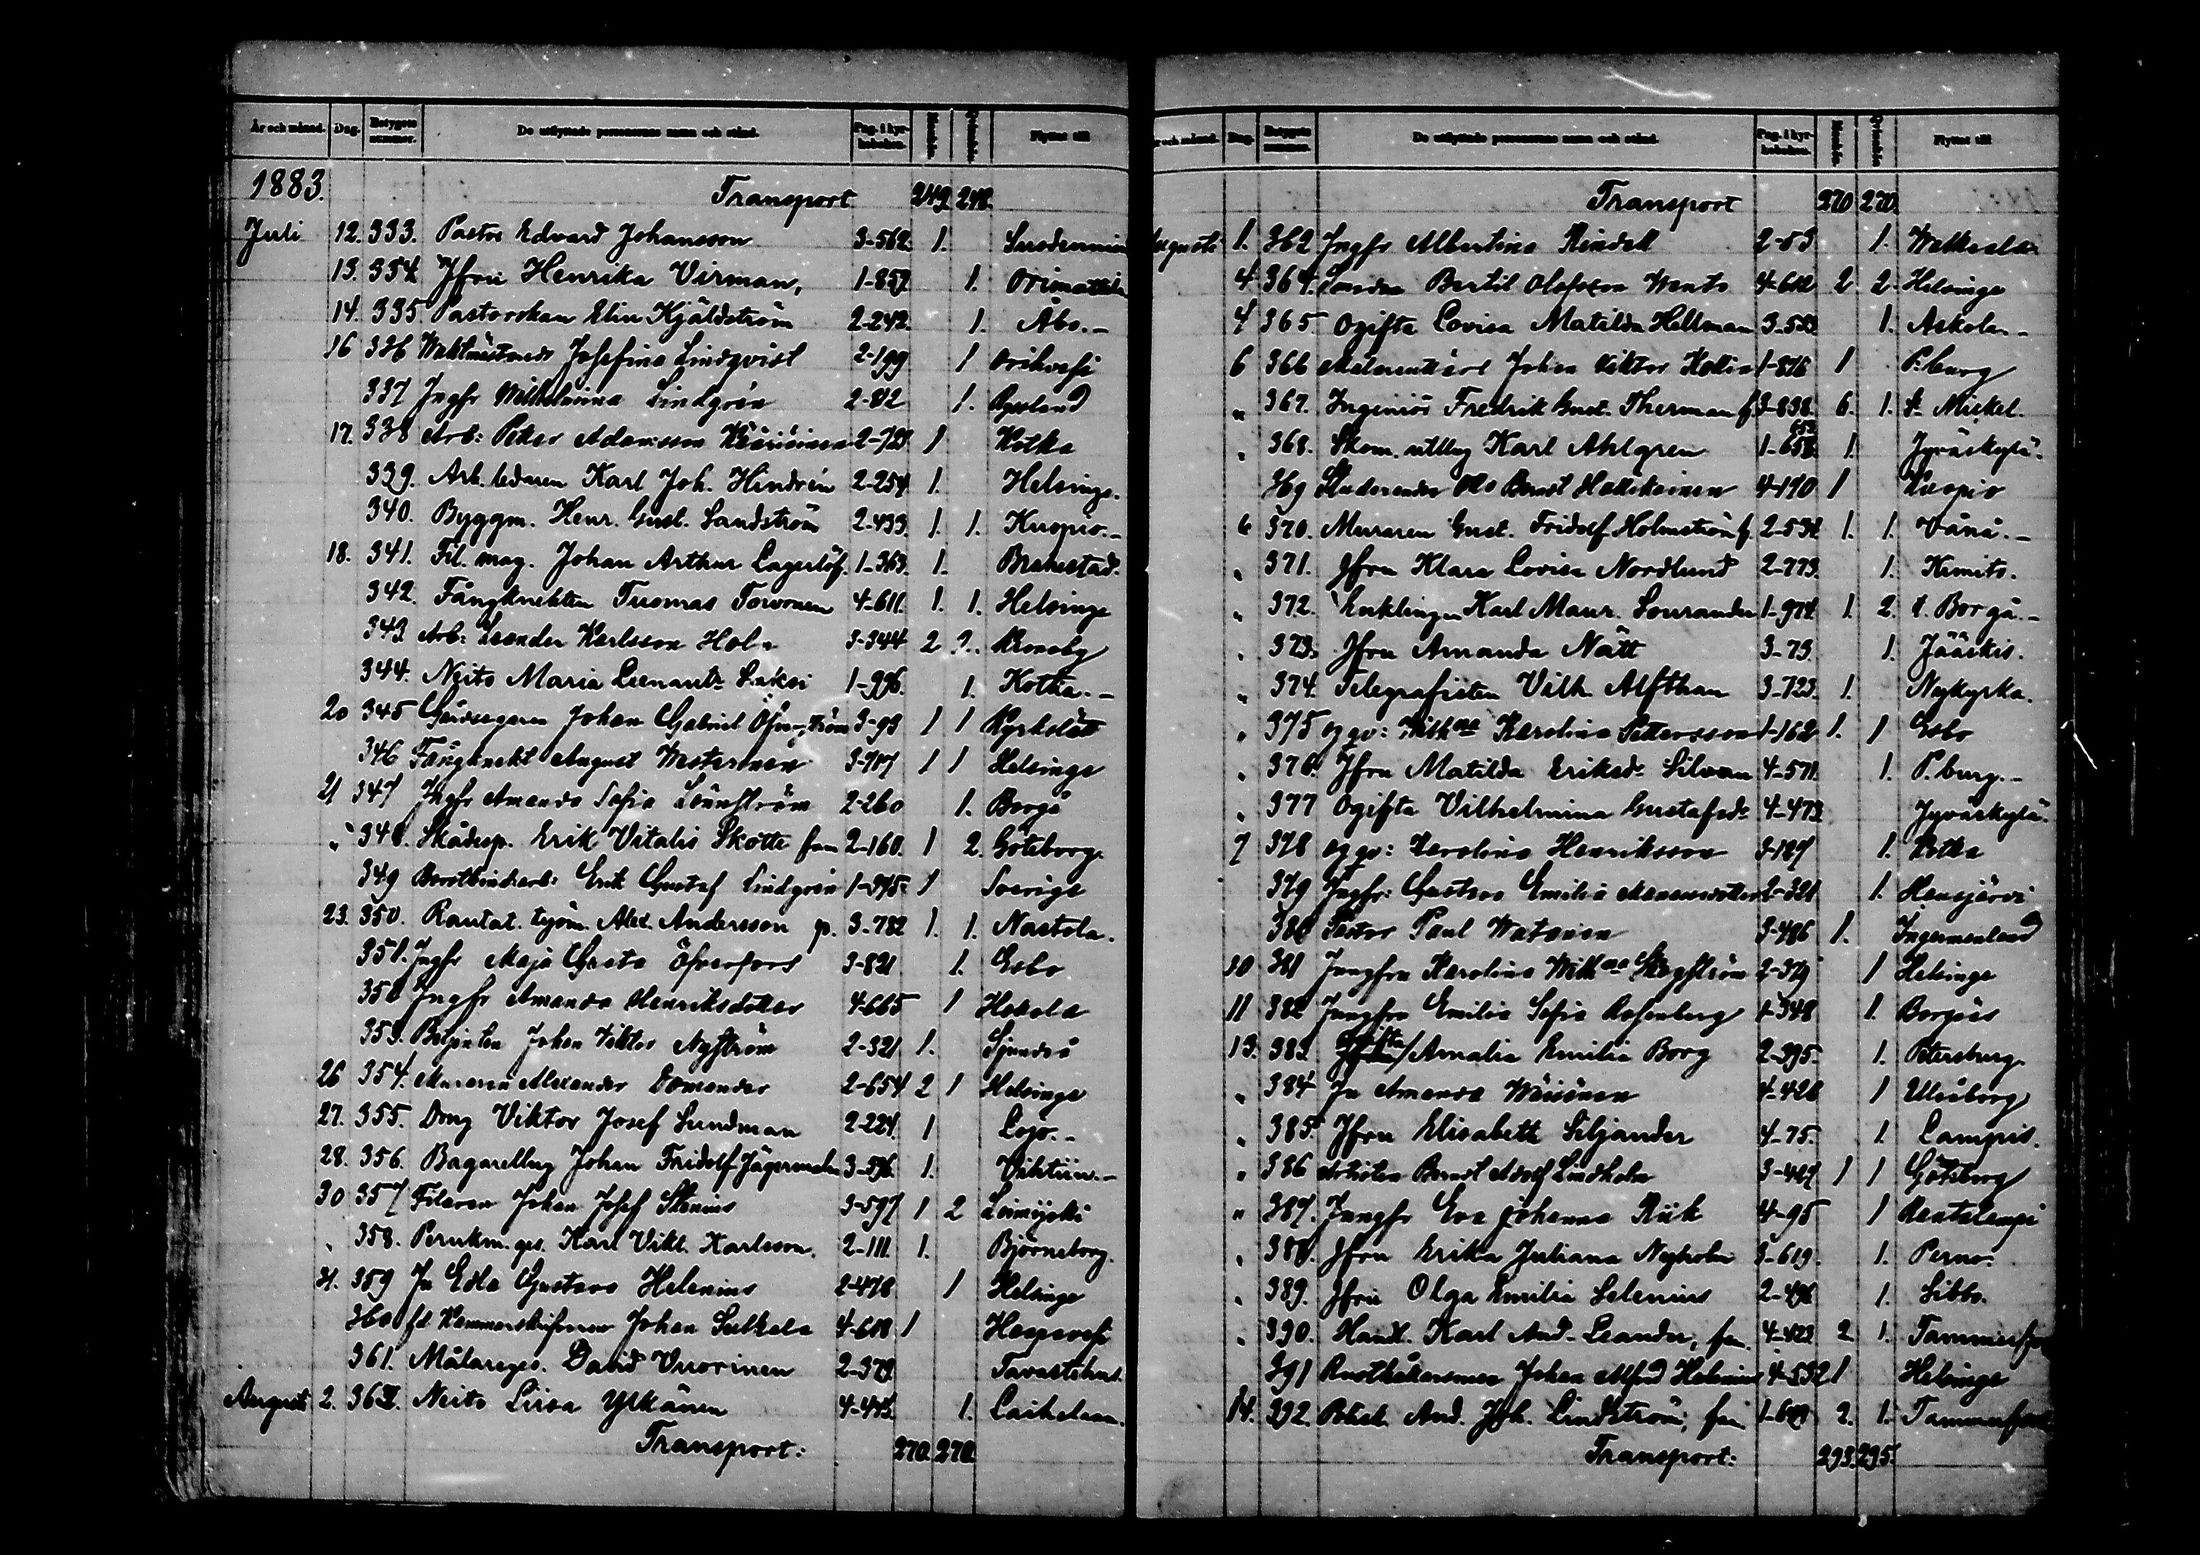 År och månad. Dag. Betygets nummer. De utflyttade personernas namn och stånd. Pag. i kyrkoboken. Mankön. Qvinkön. Flyttat till
1883. Transport 249. 248.
Juli 12. 333. Pastor Edvard Johansson 3-562. 1.
13. 354. Jfru Henrika Virman, 1-857. 1. Orimattila
14. 335 Pastorskan Elin Kjäldström 2-242. 1. Åbo.-
16 336 Josefina Lindqvist 2-199 1 Orihvesi
337 Jngfr Wilhelmina Lindgrén 2-812 1.
17. 338 Arb: Peter Adamsson 2-727 1 Kotka
339. Arb. ledaren Karl Joh. Hindrén 2-254 1. Helsinge.
340. Byggm. Henr. Gust. Sandström 2-433. 1. 1. Kuopio.-
18. 341. Fil. mag. Johan Arthur Lagerlöf. 1-363. 1. Brahestad.
342. Fångknekten Tuomas Torvonen 4-611. 1. 1. Helsinge
343. Arb: Leander Karlsson Holm 3-344 2 2. Kronoby
344. Neito Maria Leenautr Laksi 1-996. 1. Kotka.-
20 345 Johan Gabriel 3-93 1 1 Kyrkslätt
346 Fångknekt August Westerinen 3-707 1 1 Helsinge
21 347 Jngfr Amanda Sofia Lönnström 2-260 1. Borgå
" 348. Skådesp. Erik Vitalis Skotte fam 2-160. 1 2. Göteborg.
349 Borstbind:arb: Erik Gustaf Lindgrén 1-375 1 Sverige
23. 350. Rautat. työm. Alex. Andersson p. 3-782 1. 1. Nastola.
351. Jngfr Maja Greta Öfverfors 3-821 1. Esbo
352 Jngfr Amanda Henriksdotter 4-665 1 Hokola
353. Betjenten Johan Viktor Nyström 2-321 1. Sjundeå
26 354. Muraren Alexander 2-654 2 1 Helsinge
27. 355. Dräng Viktor Josef Sundman 2-224. 1 Lojo.-
28. 356. Bagarelling Johan Fridolf Jägerman 3-596. 1. Vihtiin.-
30 357 Filaren Johan Josef Stenius 3-597 1 2 Loimijoki
" 358. Perukm. ges. Karl Vikt. Karlsson. 2-111. 1. Björneborg.
31. 359 Jn Eda Gustava Helenius 2-478 1 Helsinge
360 fd. Kammarskrifvaren Johan 4-618 1 Haapavesi
361. Målareges. David Vuorinen 2-379. Tavastehus.
Augusti 2. 362. Neito Liisa Ylkänen 4-445. 1. Laihelaan.
Transport: 270. 270.
År och månad. Dag. Betygets nummer. De utflyttade personernas namn och stånd. Pag. i kyrkoboken. Mankön. Qvinkön. Flyttat till
Transport 270 270.
Augusti 1. 362 Jngfr Albertina Rindell 2-53 1. Walkeala
4 364. Bertil Olofsson 4-612 2 2. Helsinge
4 365 Ogifta Lovisa Matilda Hellman 3-523. 1. Askola.-
6 366 Johan Viktor 1-876 1 P.burg
" 367. Ingeniör Fredrik Gust. Therman f. 3-838. 6. 1. St. Mickel.
653
" 368. Skom. utllug Karl Ahlgren 1-658. 1. Jyväskylä.
369 Studeranden Otto Bernd Hallikainen 4-190 1 Kuopio
6 370. Muraren Gust. Fridolf Holmström f. 2-534. 1. 1. Vånå.-
" 371. Jfru Klara Lovisa Nordlund 2-773. 1. Kimito.
" 372. Enklingen Karl Maur. Sourander 1-974. 1. 2. l. Borgå.-
" 373. Jfru Amanda Nätt 3-73. 1. Jääskis.
" 374. Telegrafisten Vilh. Alfthan 3-723. 1. Nykyrka.
" 375 Karolina Pettersson 1-162 1. 1 Esbo
" 376. Jfru Matilda Eriksdr Silvan 4-571. 1. P.burg.-
" 377 Ogifta Vilhelmina Gustafsdr 4-473. Jyväskylä.
7 378 Karolina Henriksson 3-187 1. Kotka
379 Jngfr: Gustava Emilia 2-321 1. Hausjärvi
380 Pastor Paul Watanen 3-486 1. Ingermanland
10 381 Jungfru Karolina 2-379 1 Helsinge
11 382 Jungfru Emilia Sofia Rosenberg 1-348 1. Borgå
ogifta
13. 383. Jfru/ Amalia Emilia Borg 2-395. 1. Petersburg.
" 384 Jn Amanda Wäisänen 4-428 1 Uleåborg
" 385. Jfru Elisabeth Siljander 4-75. 1. Lampis.
" 386 Artisten Bernd Adolf Lindholm 3-427 1 1 Göteborg
" 387. Jungfr Eva Johanna Riik 4-95 1 Rautalampi
" 388. Jfru Erika Juliana Nyholm 3-619. 1. Perno.
" 389. Jfru Olga Emilia Selenius 2-496 1. Sibbo.
" 390. Handl. Karl And. Leander, fam. 4-423. 2. 1. Tammerfors
391 Johan Alfred Helenius 4-532 1 Helsinge
14. 392. And. Joh. Lindström, fam 1-609 2. 1. Tammerfors
Transport: 293. 295.